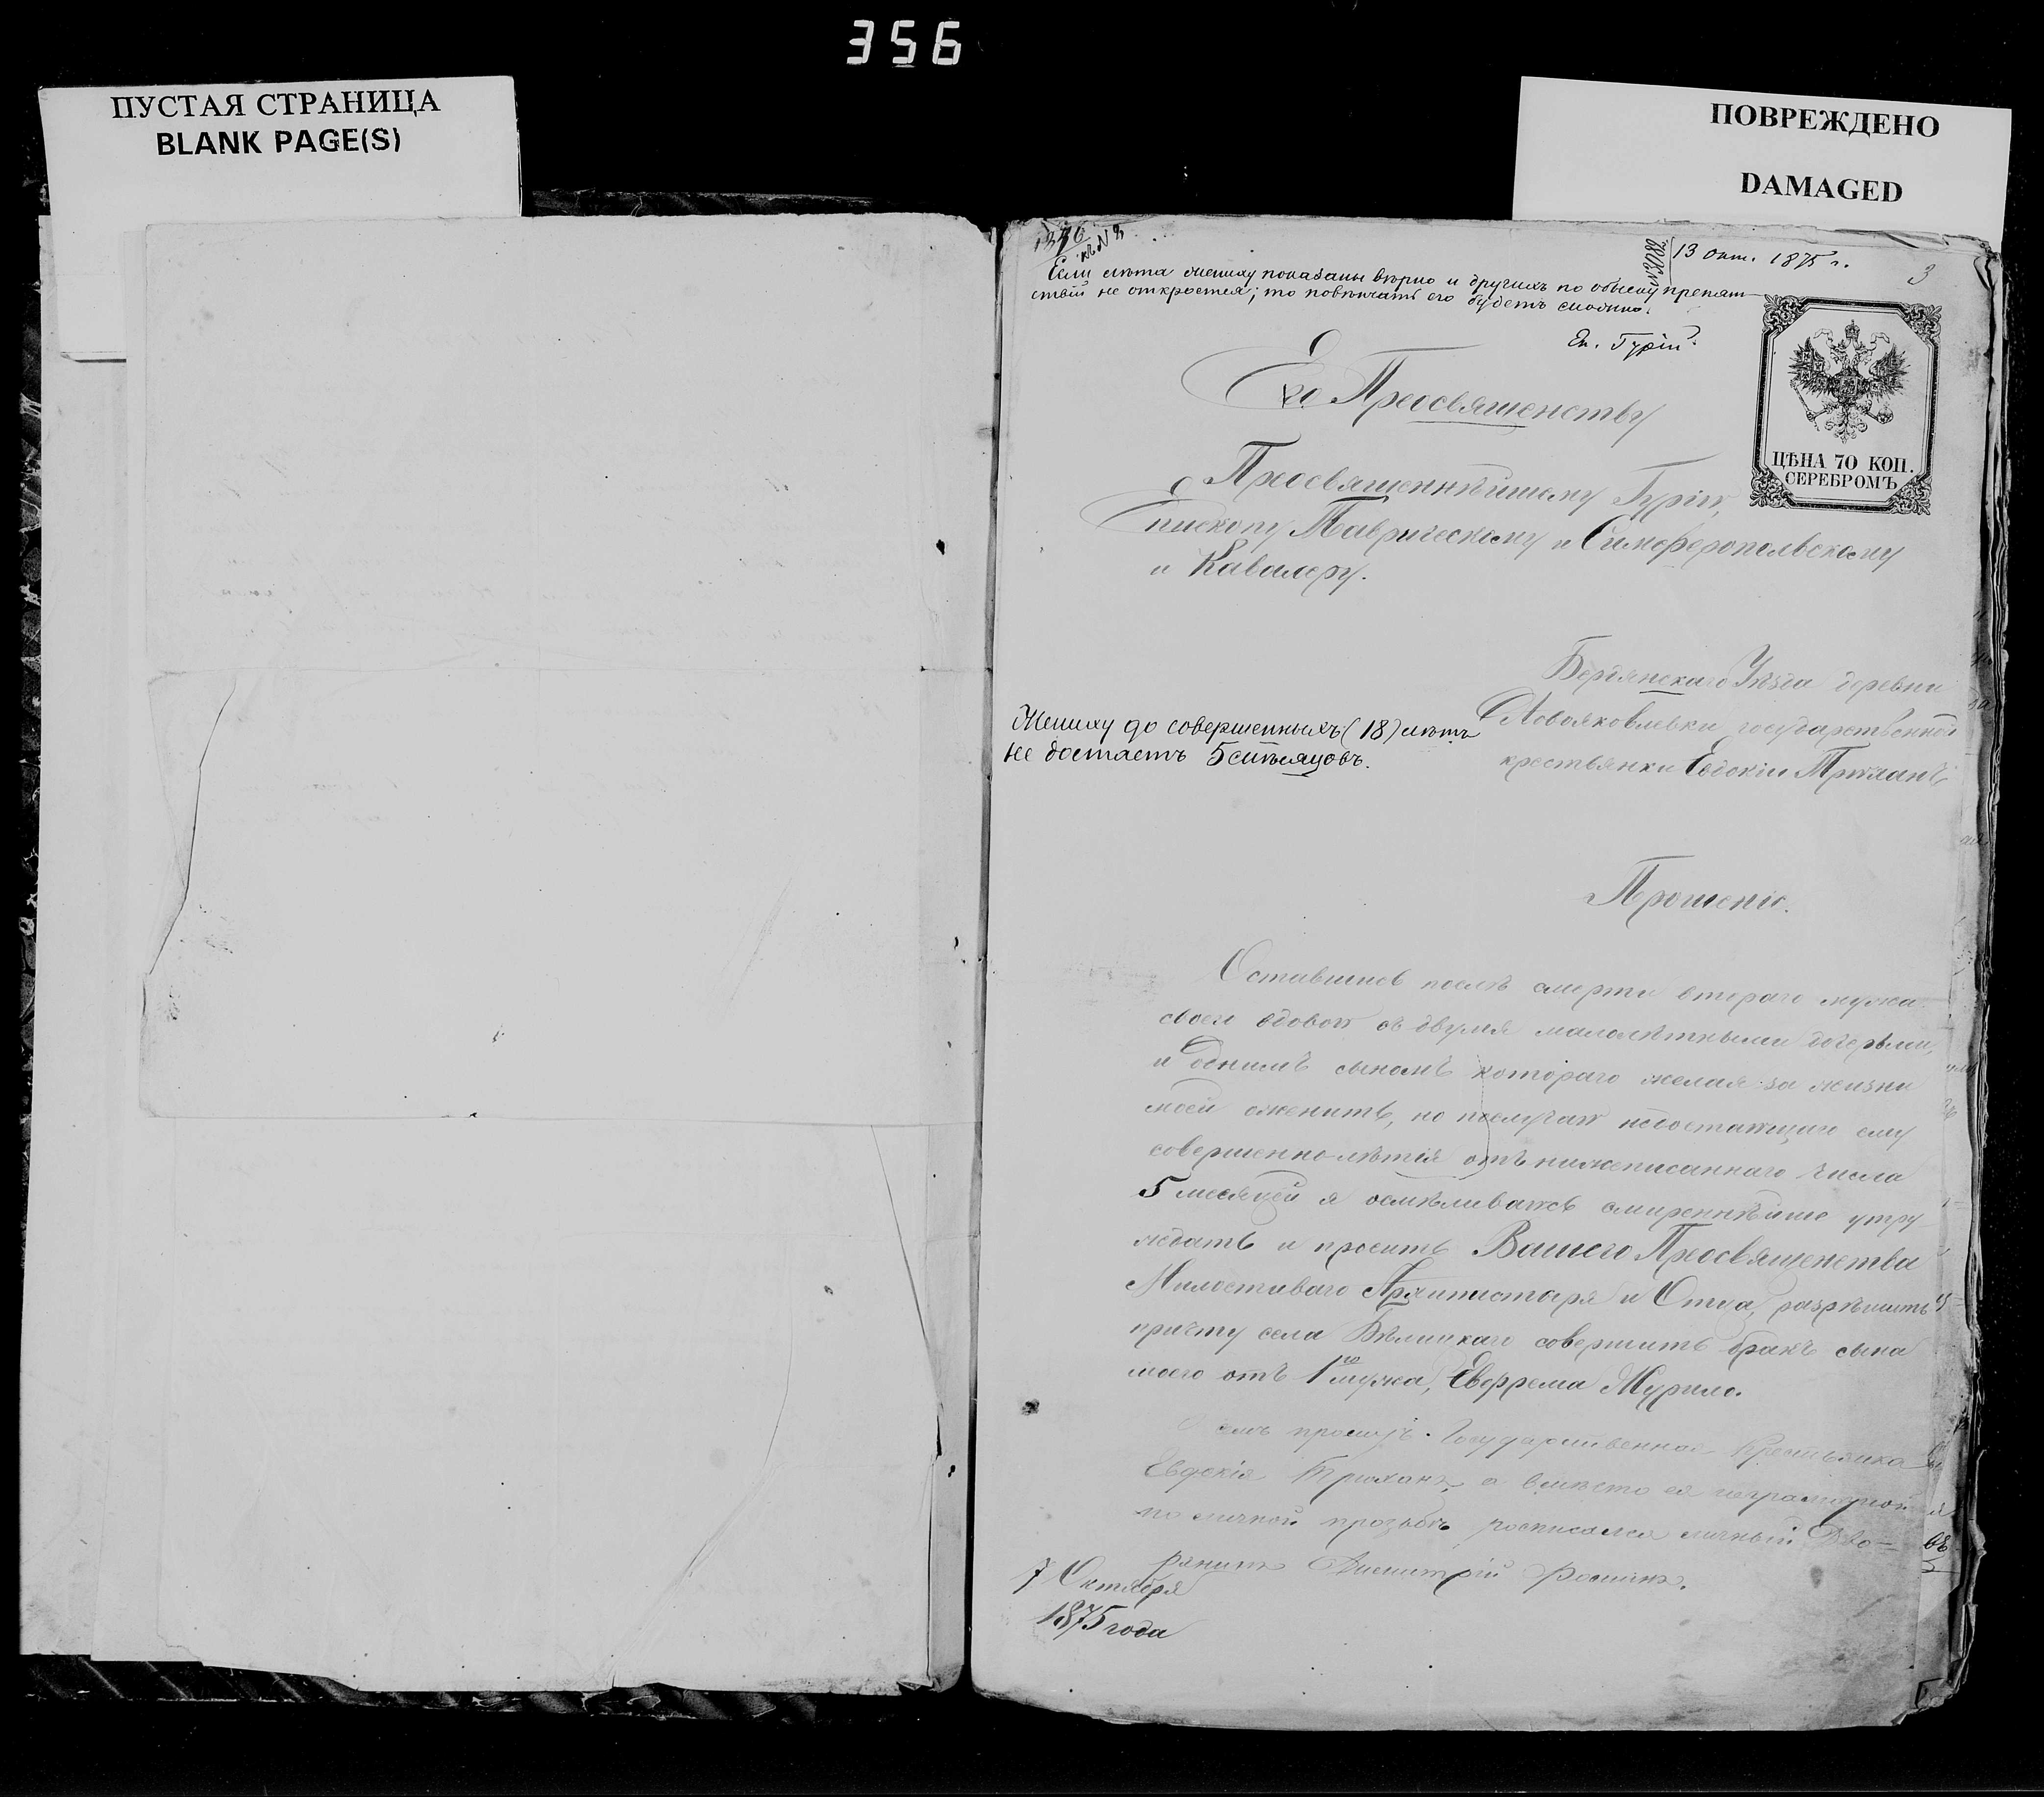 356
ПУСТАЯ СТРАНИЦА
BLANK PAGE(S)
ПОВРЕЖДЕНО
DAMAGED
13 окт. 1875 г.
3
Если лѣта жениху показаны вѣрно и другихъ по обыску препят-
ствій не откроется; то повѣнчать его будетъ можно.
Еп. Гурій.
ЦѢНА 70 КОП.
СЕРЕБРОМЪ
Его Преосвященству
Преосвященнѣйшему Гурію,
Епископу Таврическому и Симферопольскому
и Кавалеру.
Бердянскаго Уѣзда деревни
Новояковлевки государственной
крестьянки Евдокіи
Жениху до совершенныхъ (18) лѣтъ
не достаетъ 5 мѣсяцовъ.
Прошеніе.
Оставшись послѣ смерти втораго мужа
своего вдовою съ двумя малолѣтными дочерьми,
и однимъ сыномъ котораго желая за жизни
моей оженить, но послучаю недостающаго ему
совершеннолѣтія отъ нижеписаннаго числа
5 месяцей я осмѣливаюсь смиреннѣйше утру-
ждать и просить Вашего Преосвященства
Милостиваго Архипастыря и Отца, разрѣшить
причту села совершить бракъ сына
моего отъ 1го мужа, Евфрема Журило.
О семъ проситъ Государственная Крестьянка
Евдокія а вмѣсто ея неграмотной
по личной прозьбѣ росписался личный Дво-
рянинъ Димитрій
7 Октября
1875 года